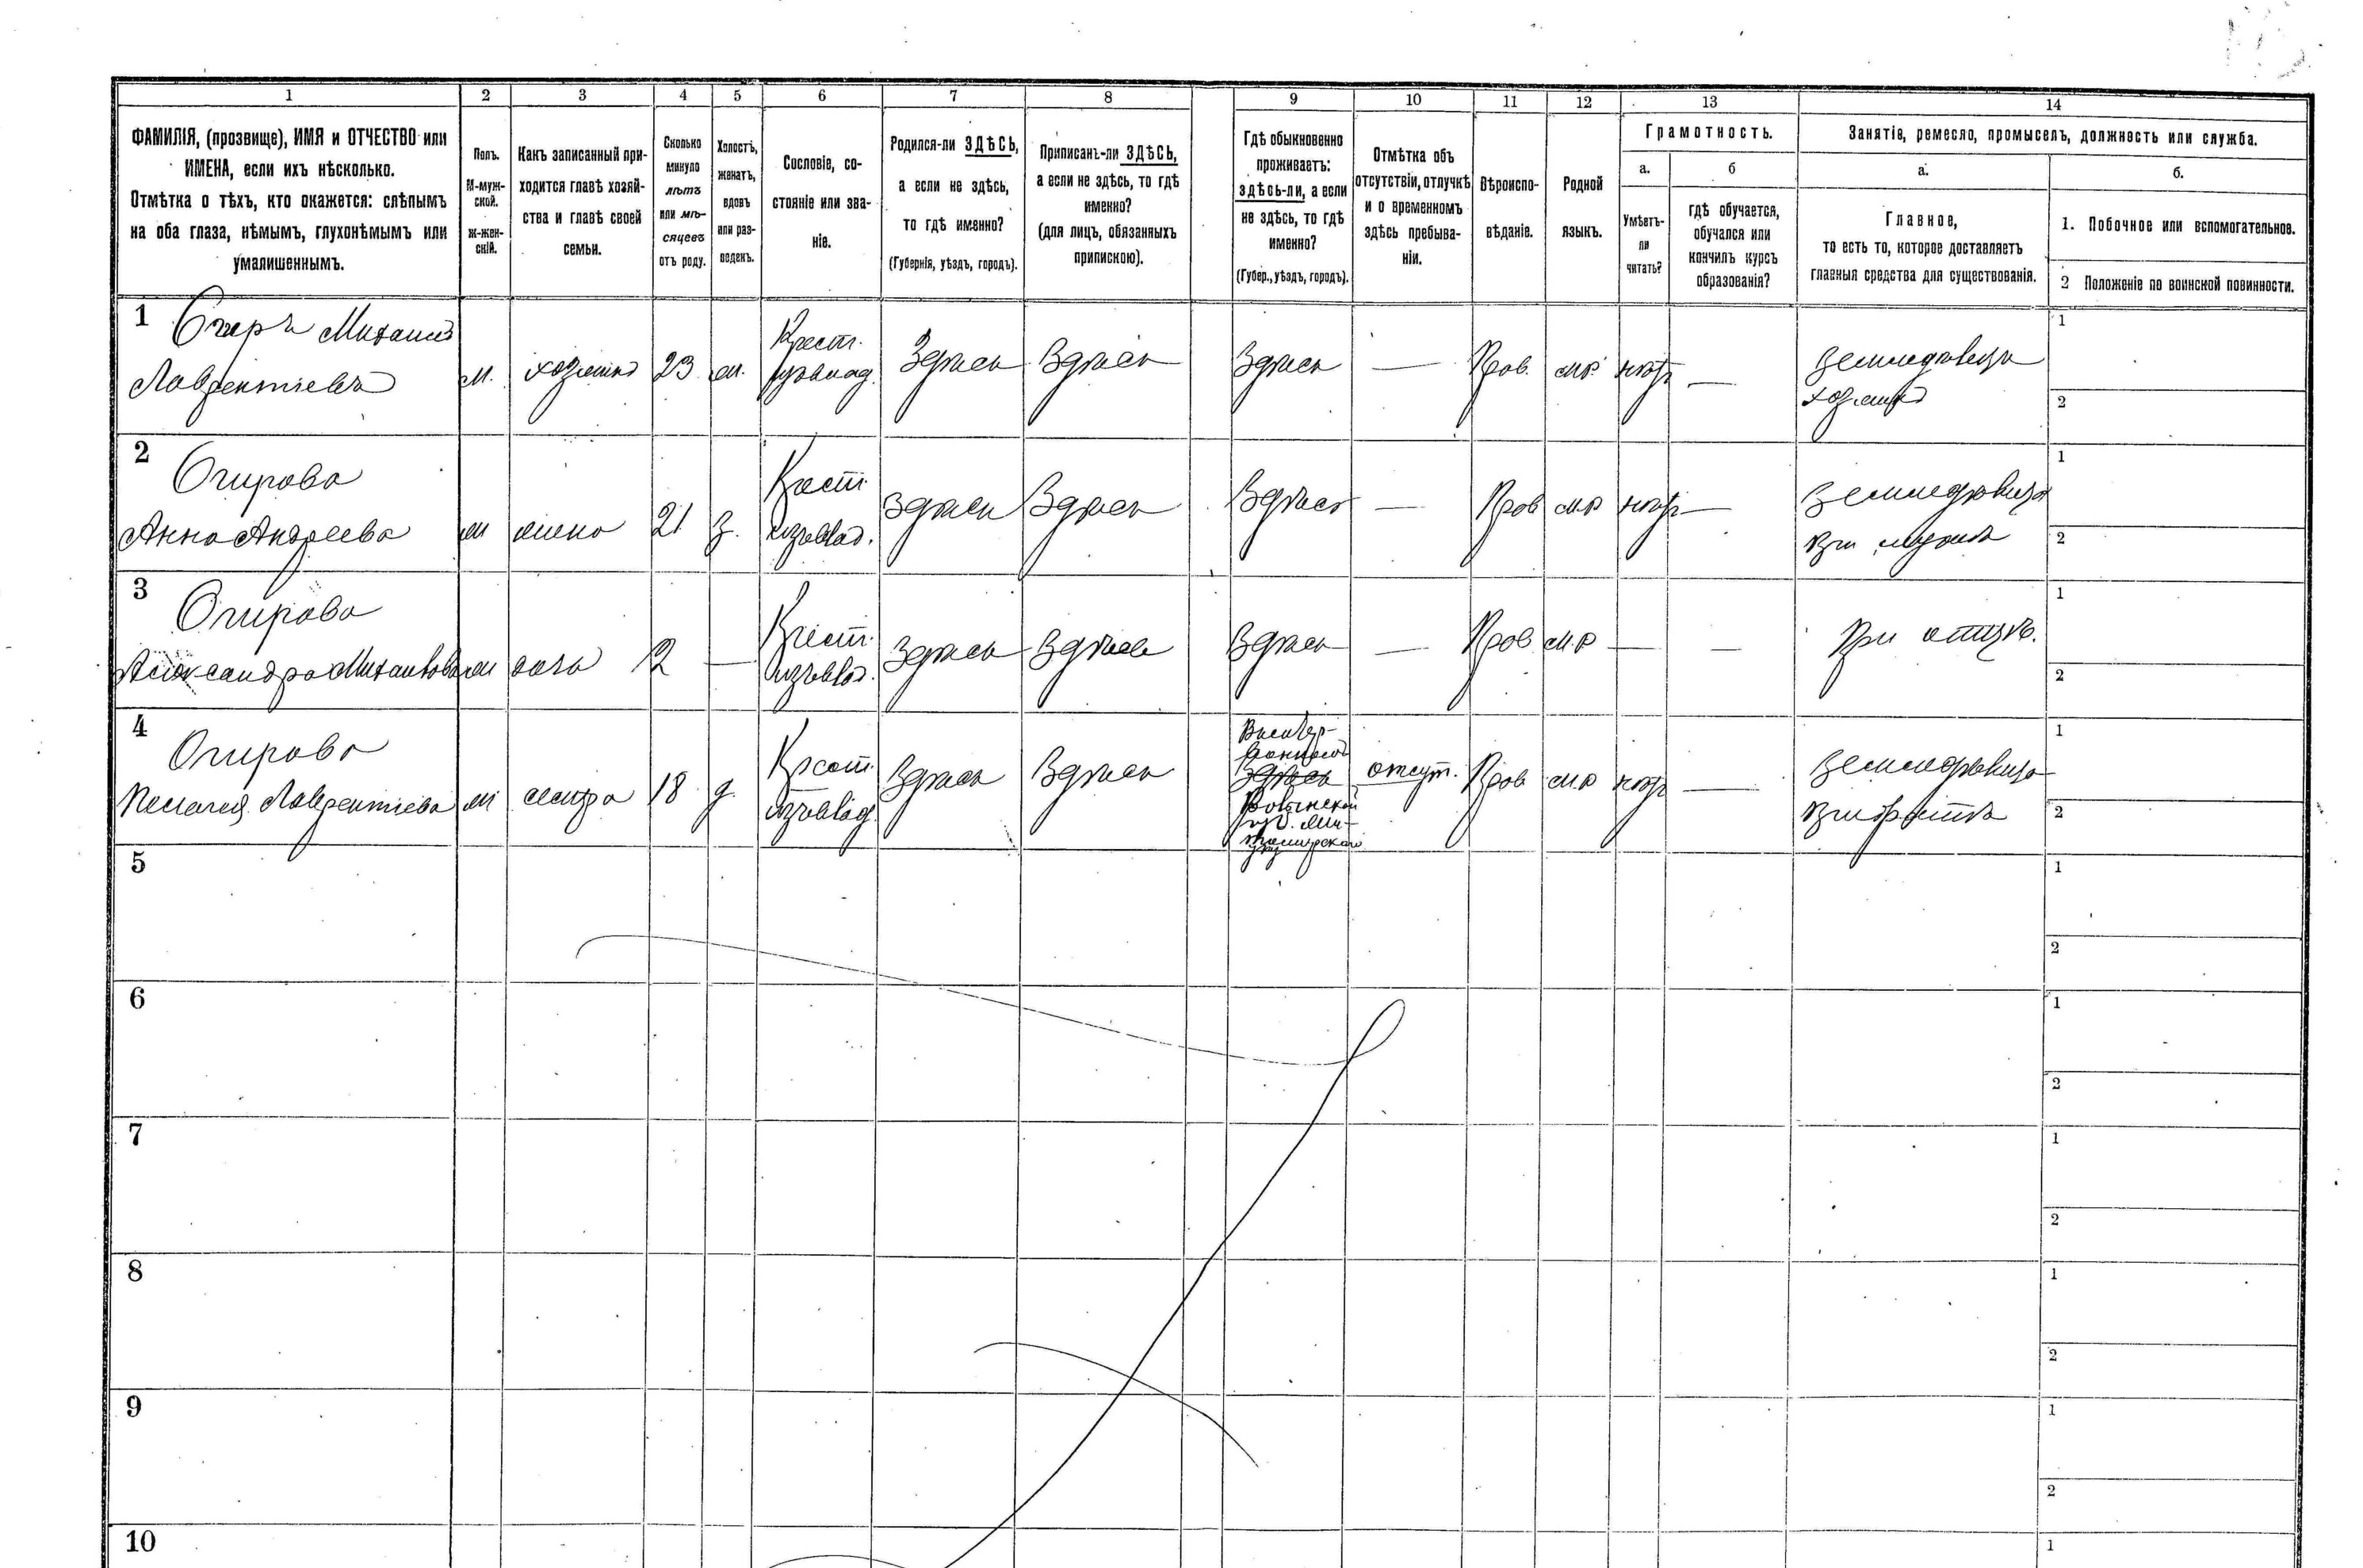 1 2 3 4 5 6 7 8 9 10 11 12 13 14
ФАМИЛІЯ, (прозвище), ИМЯ и ОТЧЕСТВО или
ИМЕНА, если ихъ нѣсколько.
Отмѣтка о тѣхъ, кто окажется: слѣпымъ
на оба глаза, нѣмымъ, глухонѣмымъ или
умалишеннымъ.
Полъ.
М-муж-
ской.
ж-жен-
скій.
Какъ записанный при-
ходится главѣ хозяй-
ства и главѣ своей
семьи.
Сколько
минуло
лѣтъ
или мѣ-
сяцевъ
отъ роду.
Холостъ,
женатъ,
вдовъ
или раз-
веденъ.
Сословіе, со-
стояніе или зва-
ніе.
Родился-ли ЗДѢСЬ,
а если не здѣсь,
то гдѣ именно?
(Губернія, уѣздъ, городъ).
Приписанъ-ли ЗДѢСЬ,
а если не здѣсь, то гдѣ
именно?
(для лицъ, обязанныхъ
припискою).
Гдѣ обыкновенно
проживаетъ:
здѣсь-ли, а если
не здѣсь, то гдѣ
именно?
(Губер., уѣздъ, городъ).
Отмѣтка объ
отсутствіи, отлучкѣ
и о временномъ
здѣсь пребыва-
ніи.
Вѣроиспо-
вѣданіе.
Родной
языкъ.
Грамотность.
а.
Умѣетъ-
ли
читать?
б
гдѣ обучается,
обучался или
кончилъ курсъ
образованія?
Занятіе, ремесло, промыселъ, должность или служба.
а.
Главное,
то есть то, которое доставляетъ
главныя средства для существованія.
б.
1. Побочное или вспомогательное.
2 Положеніе по воинской повинности.
1 Михаилъ
Лаврентіевъ
м. хозяинъ 23 Крест.
Здѣсь Здѣсь Здѣсь — Прав. м.р. —
хозяинъ
1
2
2 Огирова
Анна Андреева
жена 21 Крест.
Здѣсь Здѣсь Здѣсь — Прав м.р —
при мужѣ
1
2
3 Огирова
Александра Михайлова
дочь 2 — Крест.
Здѣсь Здѣсь Здѣсь — Прав м.р — —
При отцѣ.
1
2
4 Огирова
Пелагея Лаврентіева
сестра 18 д. Крест.
Здѣсь Здѣсь
Здѣсь
Волынской
губ.
отсут. Прав м.р —
при братѣ
1
2
5
1
2
6
1
2
7
1
2
8
1
2
9
1
2
10
1